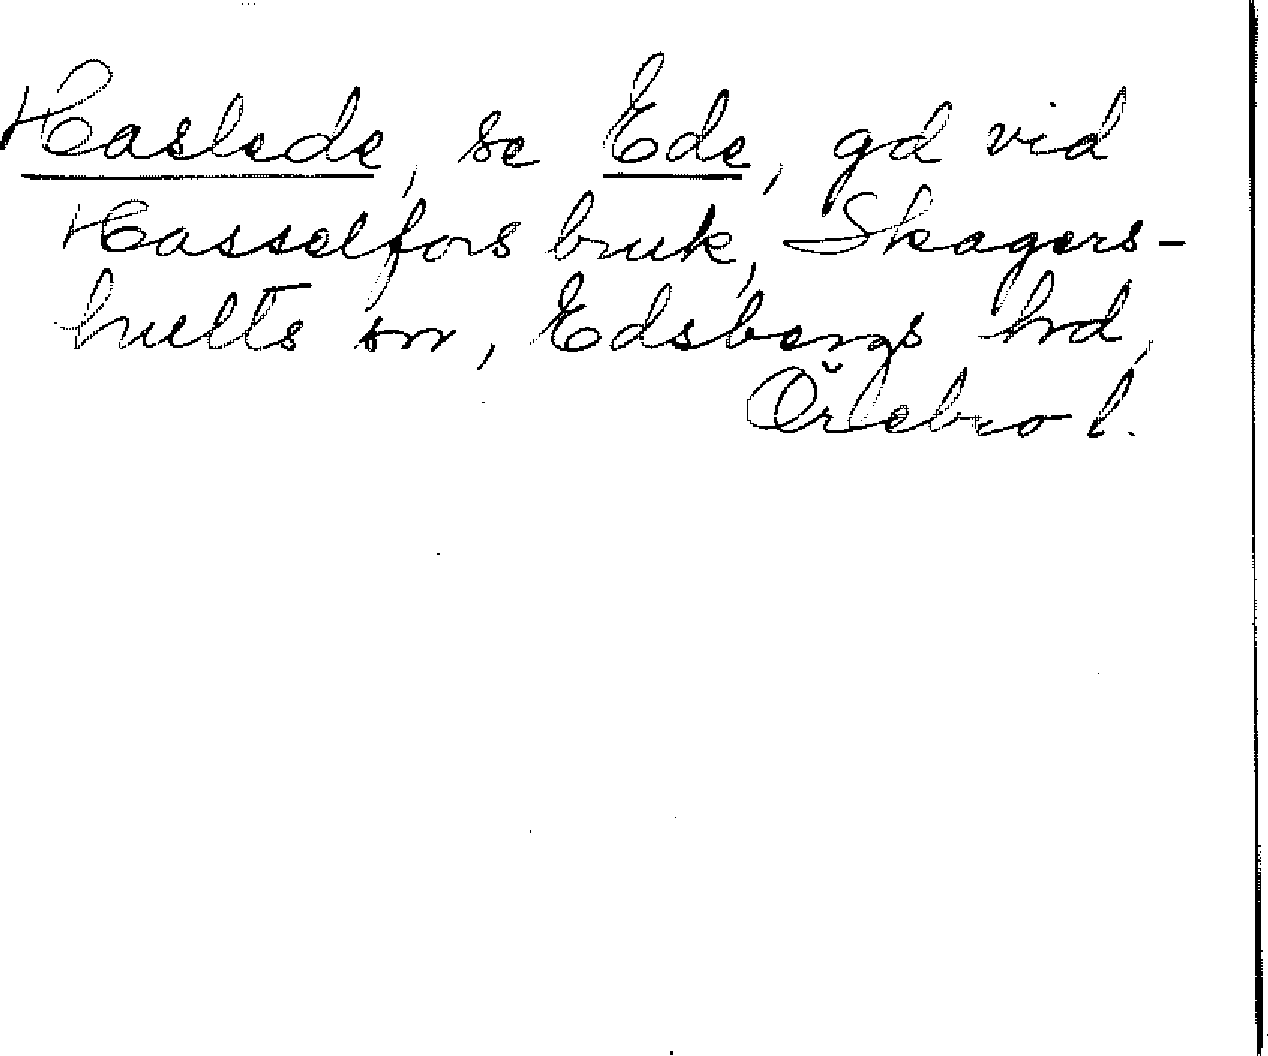 Haslede, se Ede, gd vid
Hasselfors bruk, Skagers-
hults sn, Edsbergs hrd,
Örebro l.